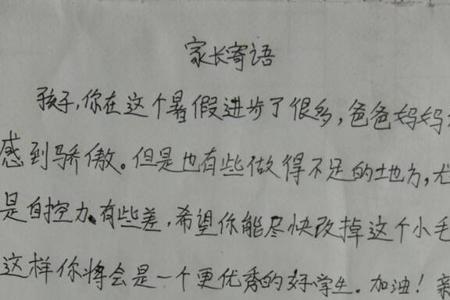 家长寄语
孩子,你在这个暑假进步了很多,爸爸妈妈
感到骄傲。但是也有些做得不足的地方,尤
是自控力有些差,希望你能尽快改掉这个小毛
这样你将会是一个更优秀的好学生。加油!亲